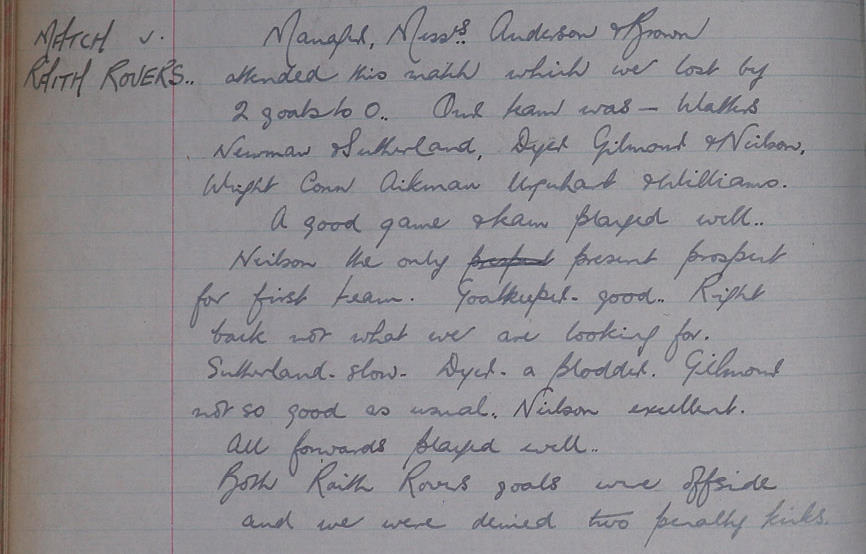 MATCH v. Manager, Messrs. Anderson & Brown
RAITH ROVERS.. attended this match which we lost by
2 goals to 0.. Our team was — Watters
Newman & Sutherland, Dyer Gilmour & Neilson,
Wright Conn Aikman Urquhart & Williams.
A good game & team played well..
Neilson the only prospect present prospect
for first team. Goalkeeper - good.. Right
back not what we are looking for.
Sutherland - slow - Dyer - a plodder. Gilmour
not so good as usual. Neilson excellent.
All forwards played well..
Both Raith Rovers goals were offside
and we were denied two penalty kicks.